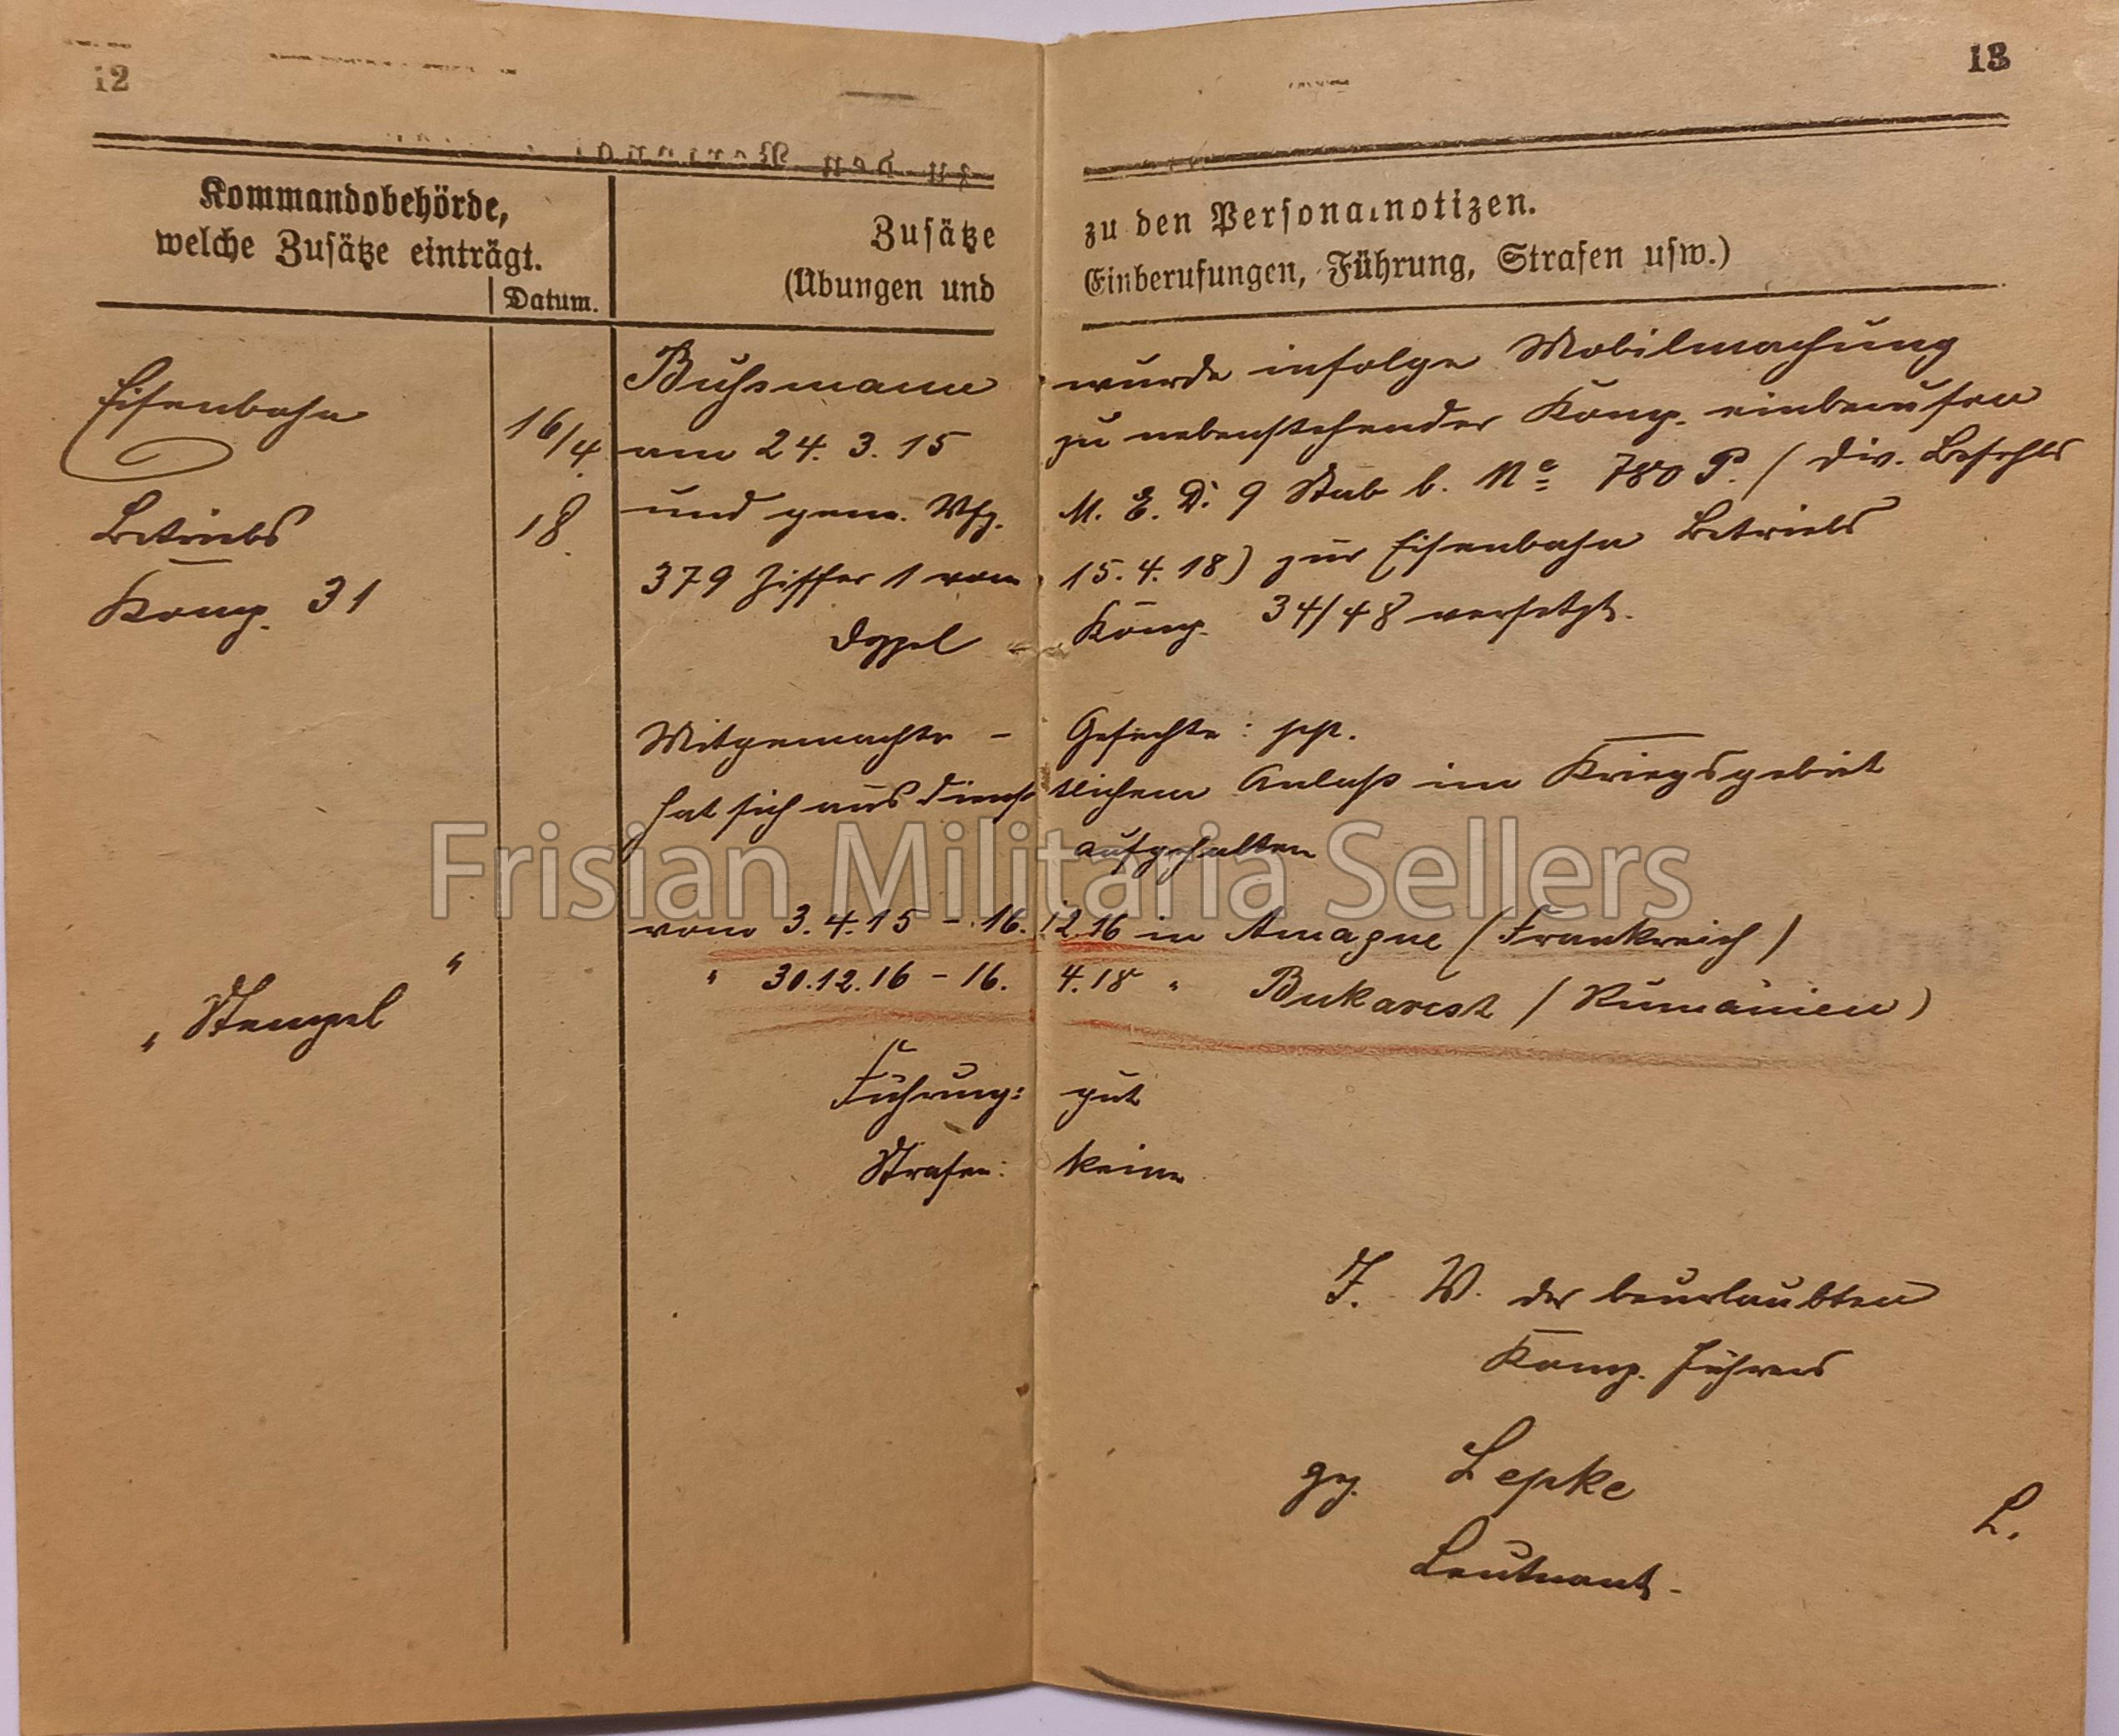 12
13
Kommandobehörde,
welche Zusätze einträgt.
Datum.
Zusätze
(Übungen und
zu den Personalnotizen.
Einberufungen, Führung, Strafen usw.)
Eisenbahn
Betriebs
Komp. 31
16/4.
18.
Buhsmann wurde infolge Mobilmachung
am 24. 3. 15 zu nebenstehender Komp. einberufen
und gem. Vfg. M. E. D. 9 Stab b. No 780 P. (Div. Befehls
379 Ziffer 1 vom 15. 4. 18) zur Eisenbahn Betriebs
Doppel Komp. 34/48 versetzt.
Mitgemachte - Gefechte: pp.
hat sich aus dienstlichem Anlaß im Kriegsgebiet
aufgehalten
Frisian Militaria Sellers
vom 3. 4. 15 - 16. 12. 16 in Amagne (Frankreich)
" 30. 12. 16 - 16. 4. 18 " Bukarest (Rumänien)
" Stempel "
Führung: gut
Strafen: keine
I. V. des beurlaubten
Komp. Führers
gez. Lepke
L.
Leutnant.